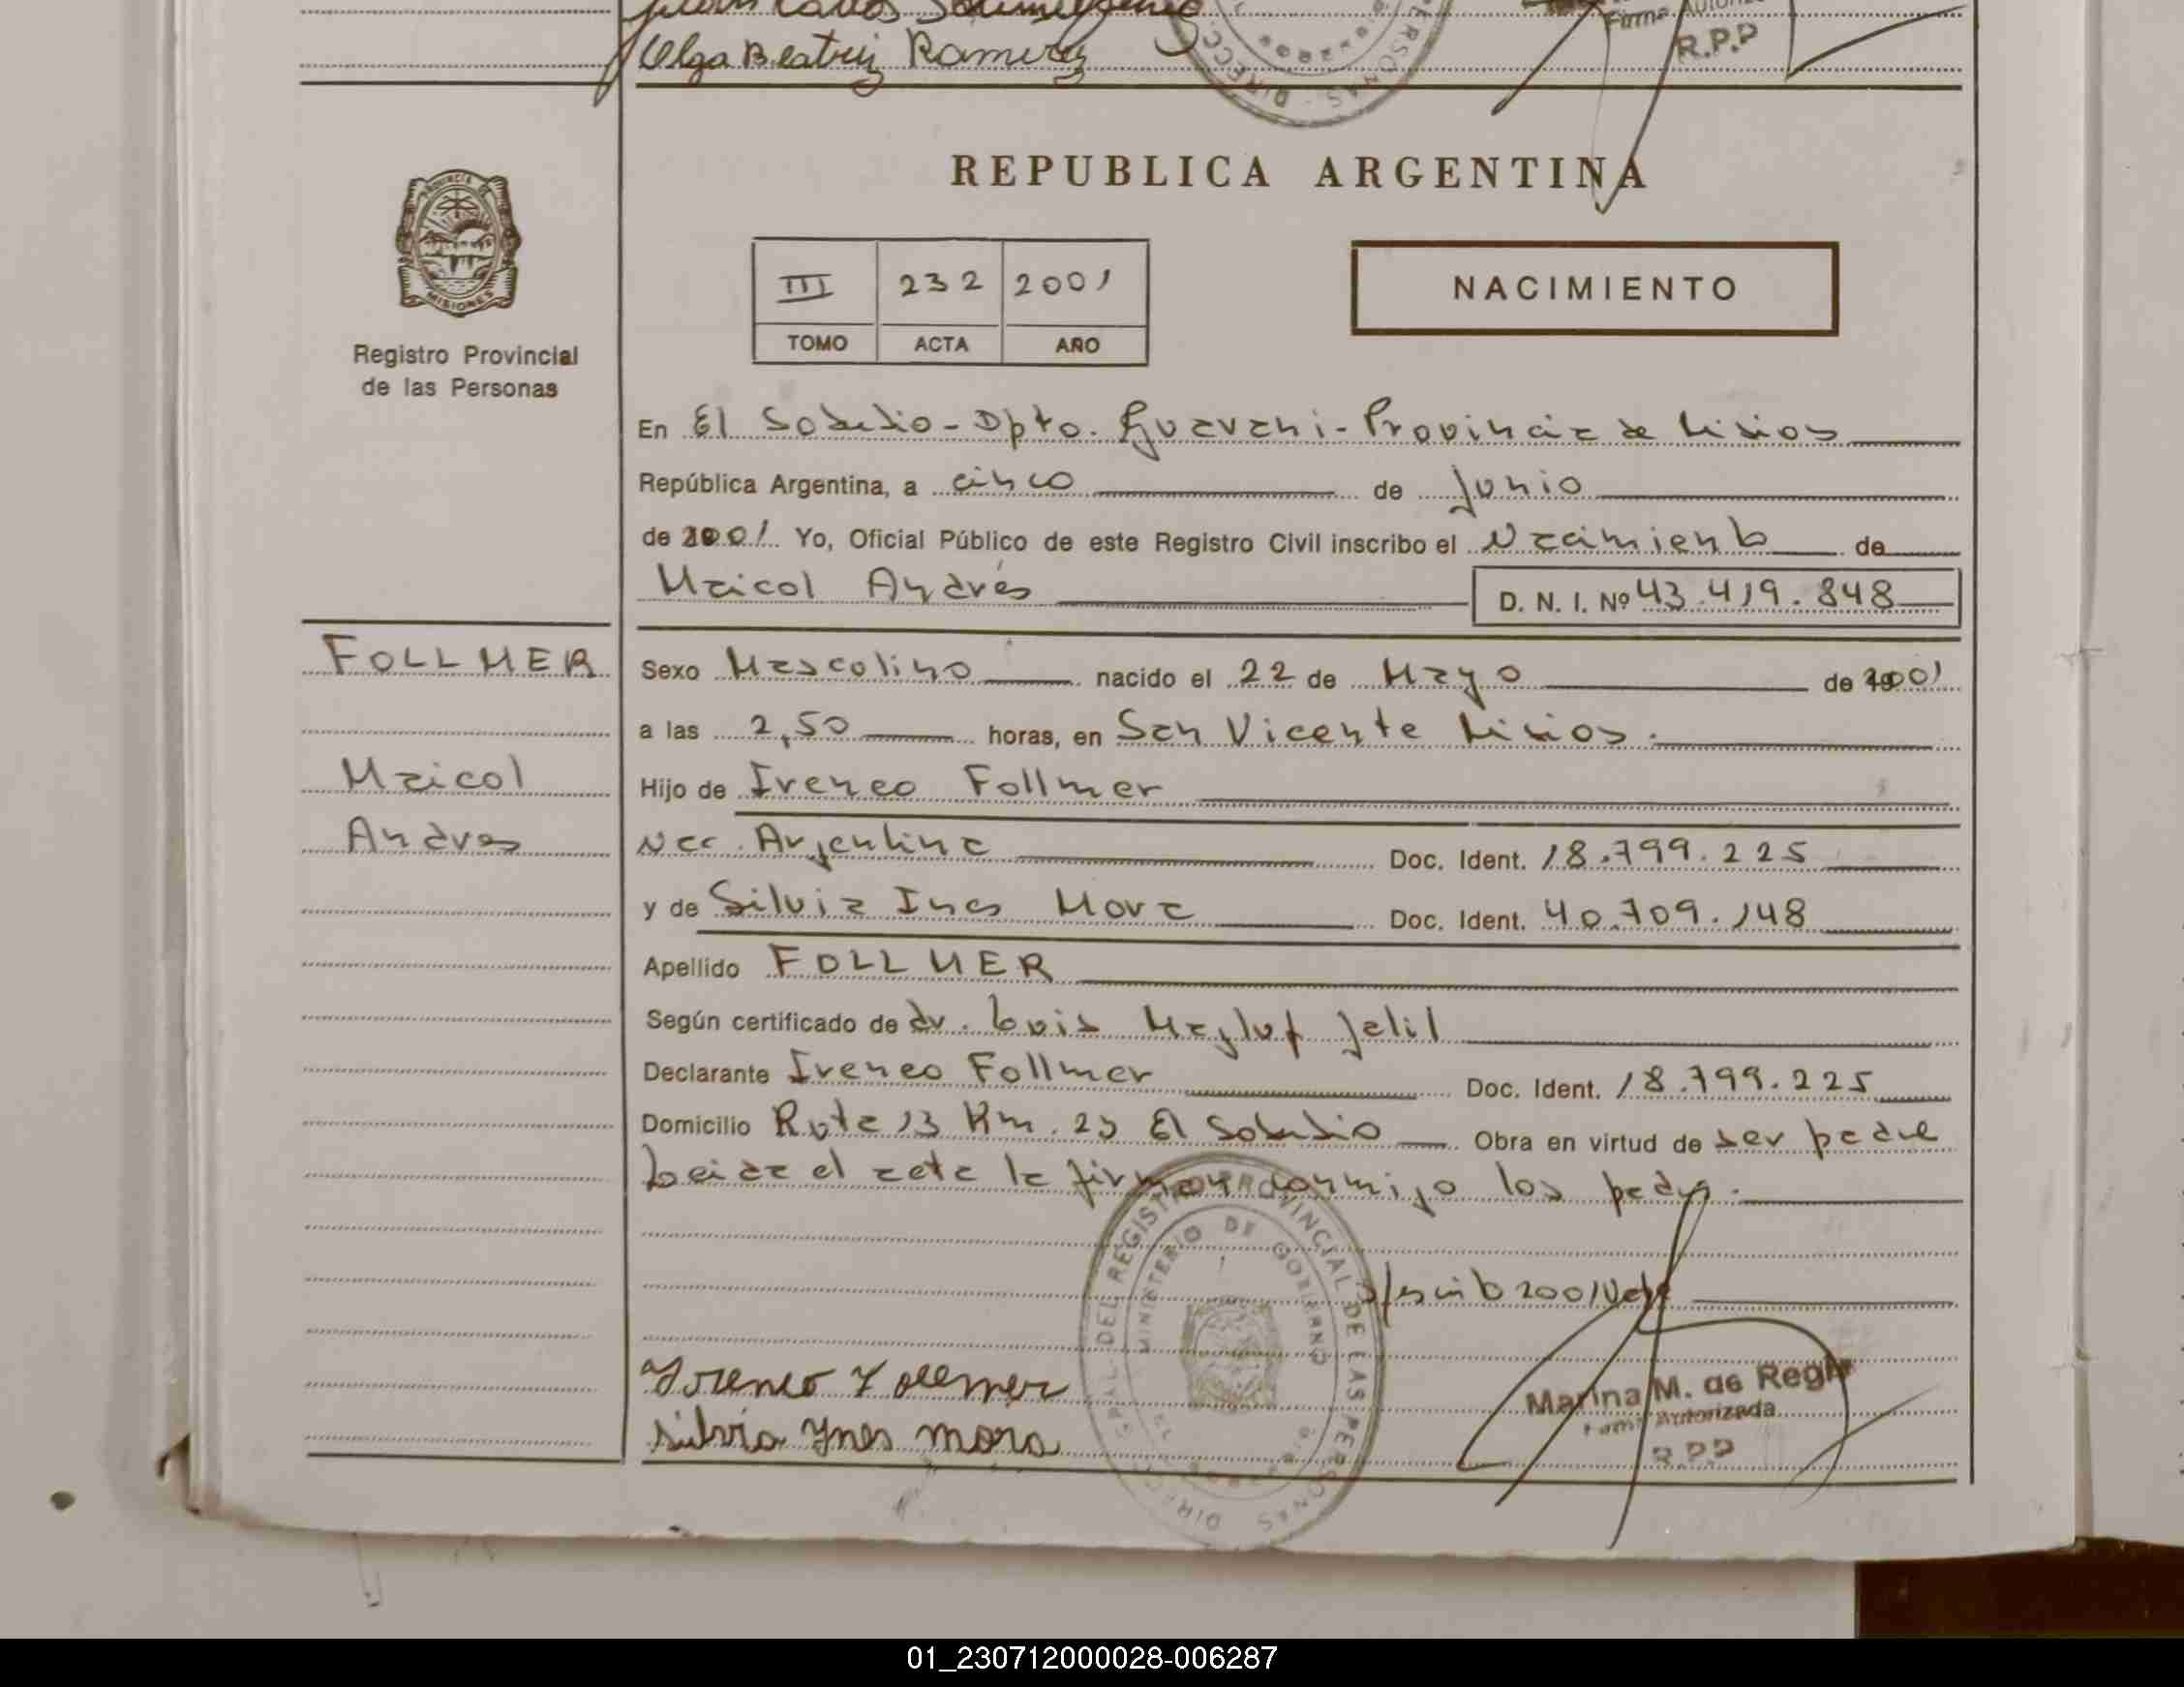 Olga Beatriz Ramirez
Firma
R.P.P
REPUBLICA ARGENTINA
MISIONES
Registro Provincial
de las Personas
III 232 2001
TOMO ACTA AÑO
NACIMIENTO
En El Soberbio - Dpto. Guarani - Provincia de Misios
República Argentina, a cinco de Junio
de 2001 Yo, Oficial Público de este Registro Civil inscribo el Nacimiento de
Maicol Andrés D. N. I. Nº 43.419.848
FOLLMER
Maicol
Andres
Sexo Mascolino nacido el 22 de Mayo de 2001
a las 2,50 horas, en San Vicente Misios.
Hijo de Ireneo Follmer
Nac. Argentina Doc. Ident. 18.799.225
y de Silvia Ines Mora Doc. Ident. 40.709.148
Apellido FOLLMER
Según certificado de dr. Luis Mayluf Jalil
Declarante Ireneo Follmer Doc. Ident. 18.799.225
Domicilio Ruta 13 Km. 25 El Soberbio Obra en virtud de ser padre
Leida el acta la firman conmigo los padres.
2001 Vale
Ireneo Follmer
Silvia Ynes mora
DEL REGISTRO PROVINCIAL DE LAS PERSONAS
MINISTERIO DE GOBIERNO
Marina M. de Regis
Firma Autorizada
R.P.P
01_230712000028-006287